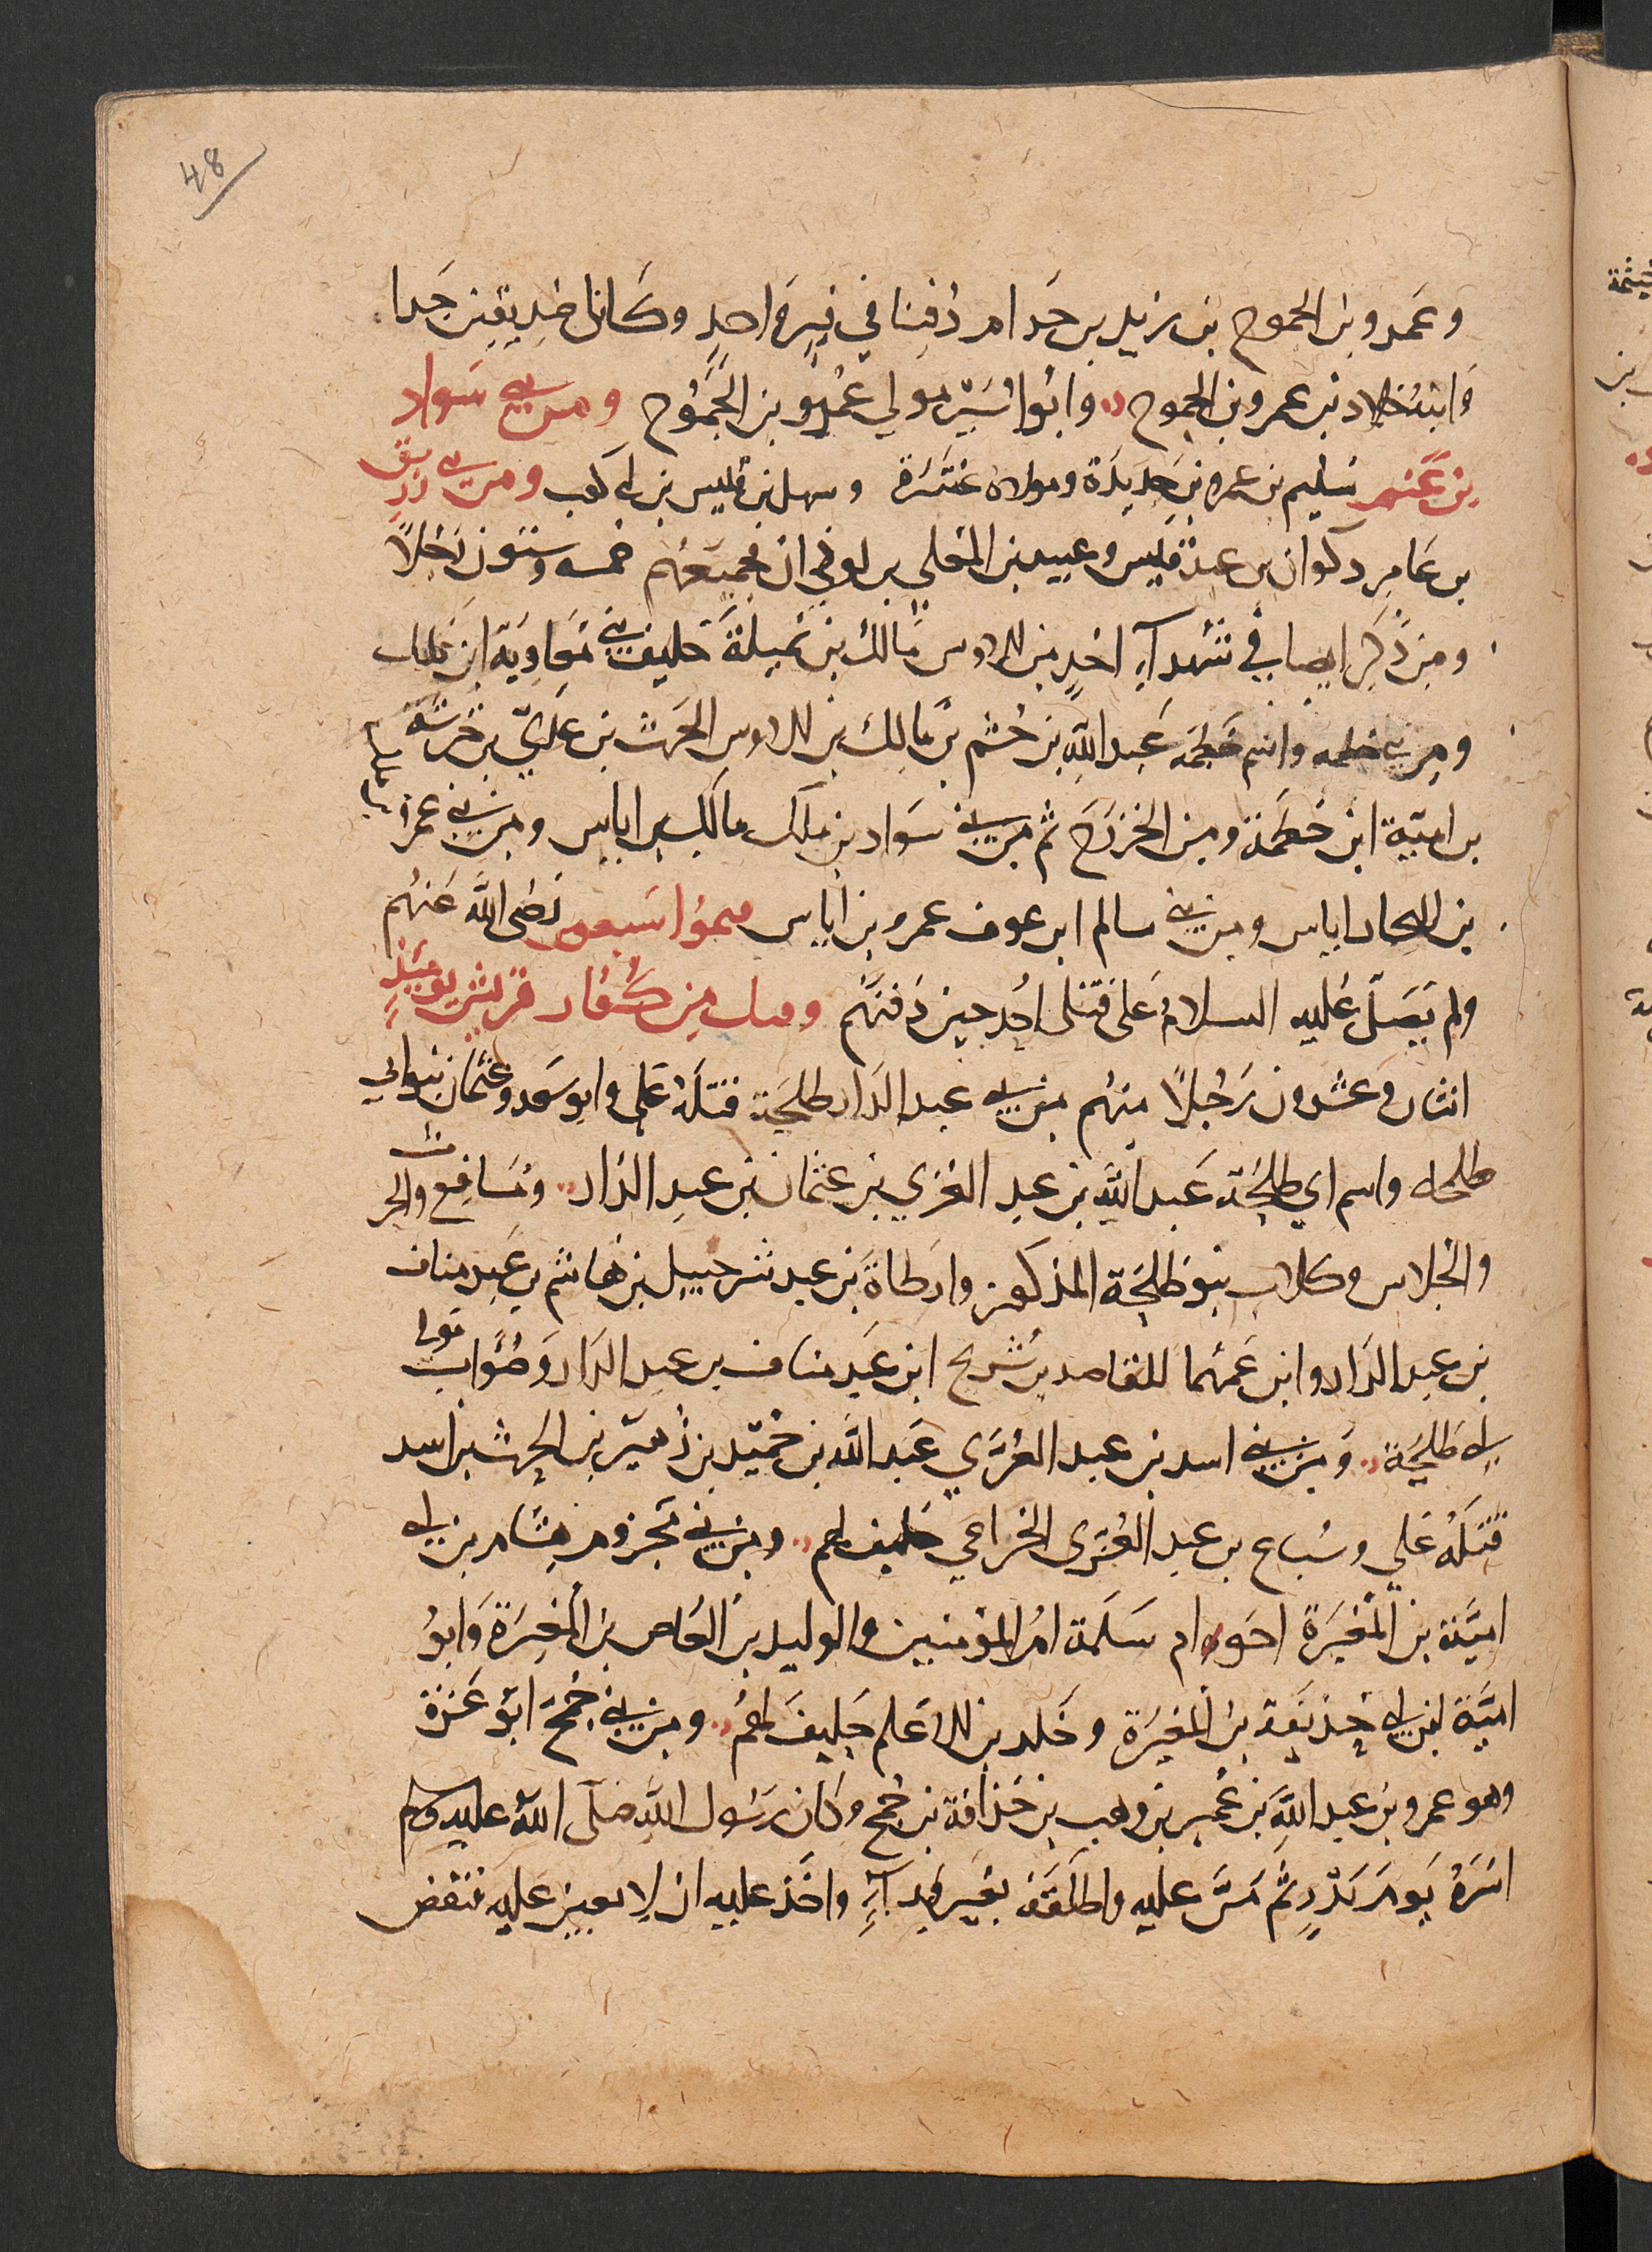 48
وعمرو بن الجموح بن زيد بن حرام دفنا في قبر واحد وكانا صديقين جدا
وابنه خلاد بن عمرو بن الجموح وابو ايسر مولي عمرو بن الجموح ومن بني سواد
بن غنم سليم بن عمرو بن حديدة ومولاه عنترة وسهل بن قيس بن ابي كعب ومن بني زريق
بن عامر ذكوان بن عبد قيس وعبيد بن المعلي بن لوذان فجميعهم خمسة وستون رجلا
ومن ذكر ايضا في شهدآء احد من الاوس مالك بن نميلة حليف بني معاوية ابن مالك
ومن بني خطمه واسم خطمه عبد الله بن جشم بن مالك بن الاوس الحرث بن عدي بن خرشة
بن امية ابن خطمة ومن الخزرج ثم من بني سواد بن ملك مالك بن اياس ومن بني عمرو
بن النجار اياس ومن بني سالم ابن عوف عمرو بن اياس فتموا سبعون رضي الله عنهم
ولم يصل عليه السلام على قتلى احد حين دفنهم وقتل من كفار قريش يوميذ
اثنان وعشرون رجلا منهم من بني عبد الدار طلحة قتله علي وابو سعد وعثمان بنوا ابي
طلحه واسم ابي طلحة عبد الله بن عبد العزي بن عثمان بن عبد الدار ومسافع والحرث
والجلاس وكلاب بنو طلحة المذكور وارطاة بن عبد شرحبيل بن هاشم بن عبد مناف
بن عبد الدار وابن عمهما القاسد بن شريح ابن عبد مناف بن عبد الدار وصواب مولى
ابي طلحة ومن بني اسد بن عبد العزي عبد الله بن حميد بن زهير بن الحرث بن اسد
قتله علي وسباع بن عبد العزى الخزاعي حليف لهم ومن بني مخزوم هشام بن ابي
امية بن المغيرة اخو ام سلمة ام المؤمنين والوليد بن العاص بن المغيرة وابو
امية ابن ابي حذيفة بن المغيرة وخلد بن الاعلم حليف لهم ومن بني جمح ابو عزة
وهو عمرو بن عبد الله بن عمير بن وهب بن حذافة بن جمح وكان رسول الله صلى الله عليه وسلم
اسره يوم بدر ثم من عليه واطلقه بغير فدآء واخذ عليه ان لا يعين عليه فنقض